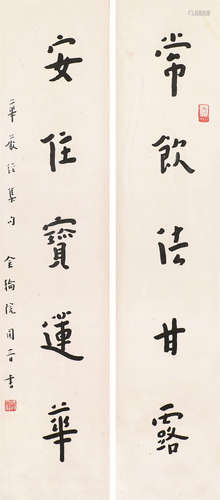 常飲法甘露
安住寶蓮華
華嚴經集句 金輪院閒云書